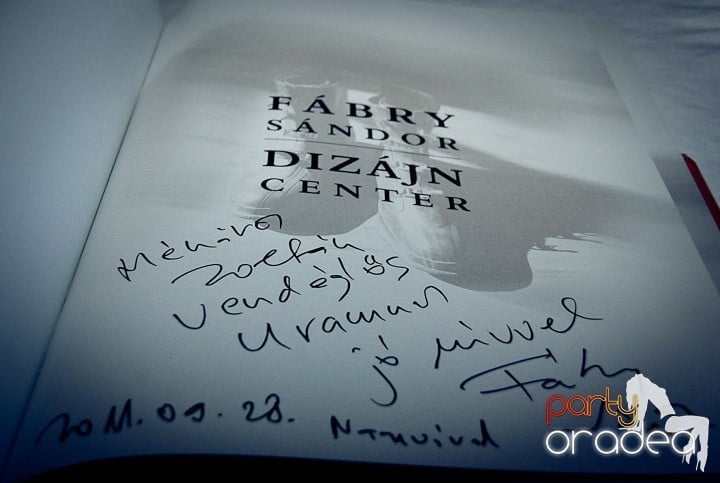 FÁBRY
SÁNDOR
DIZÁJN
CENTER
Zoltán
Vendéglős
Uramnak
jó szívvel
Fábry
2011.09.28. Nagyvárad
party
oradea